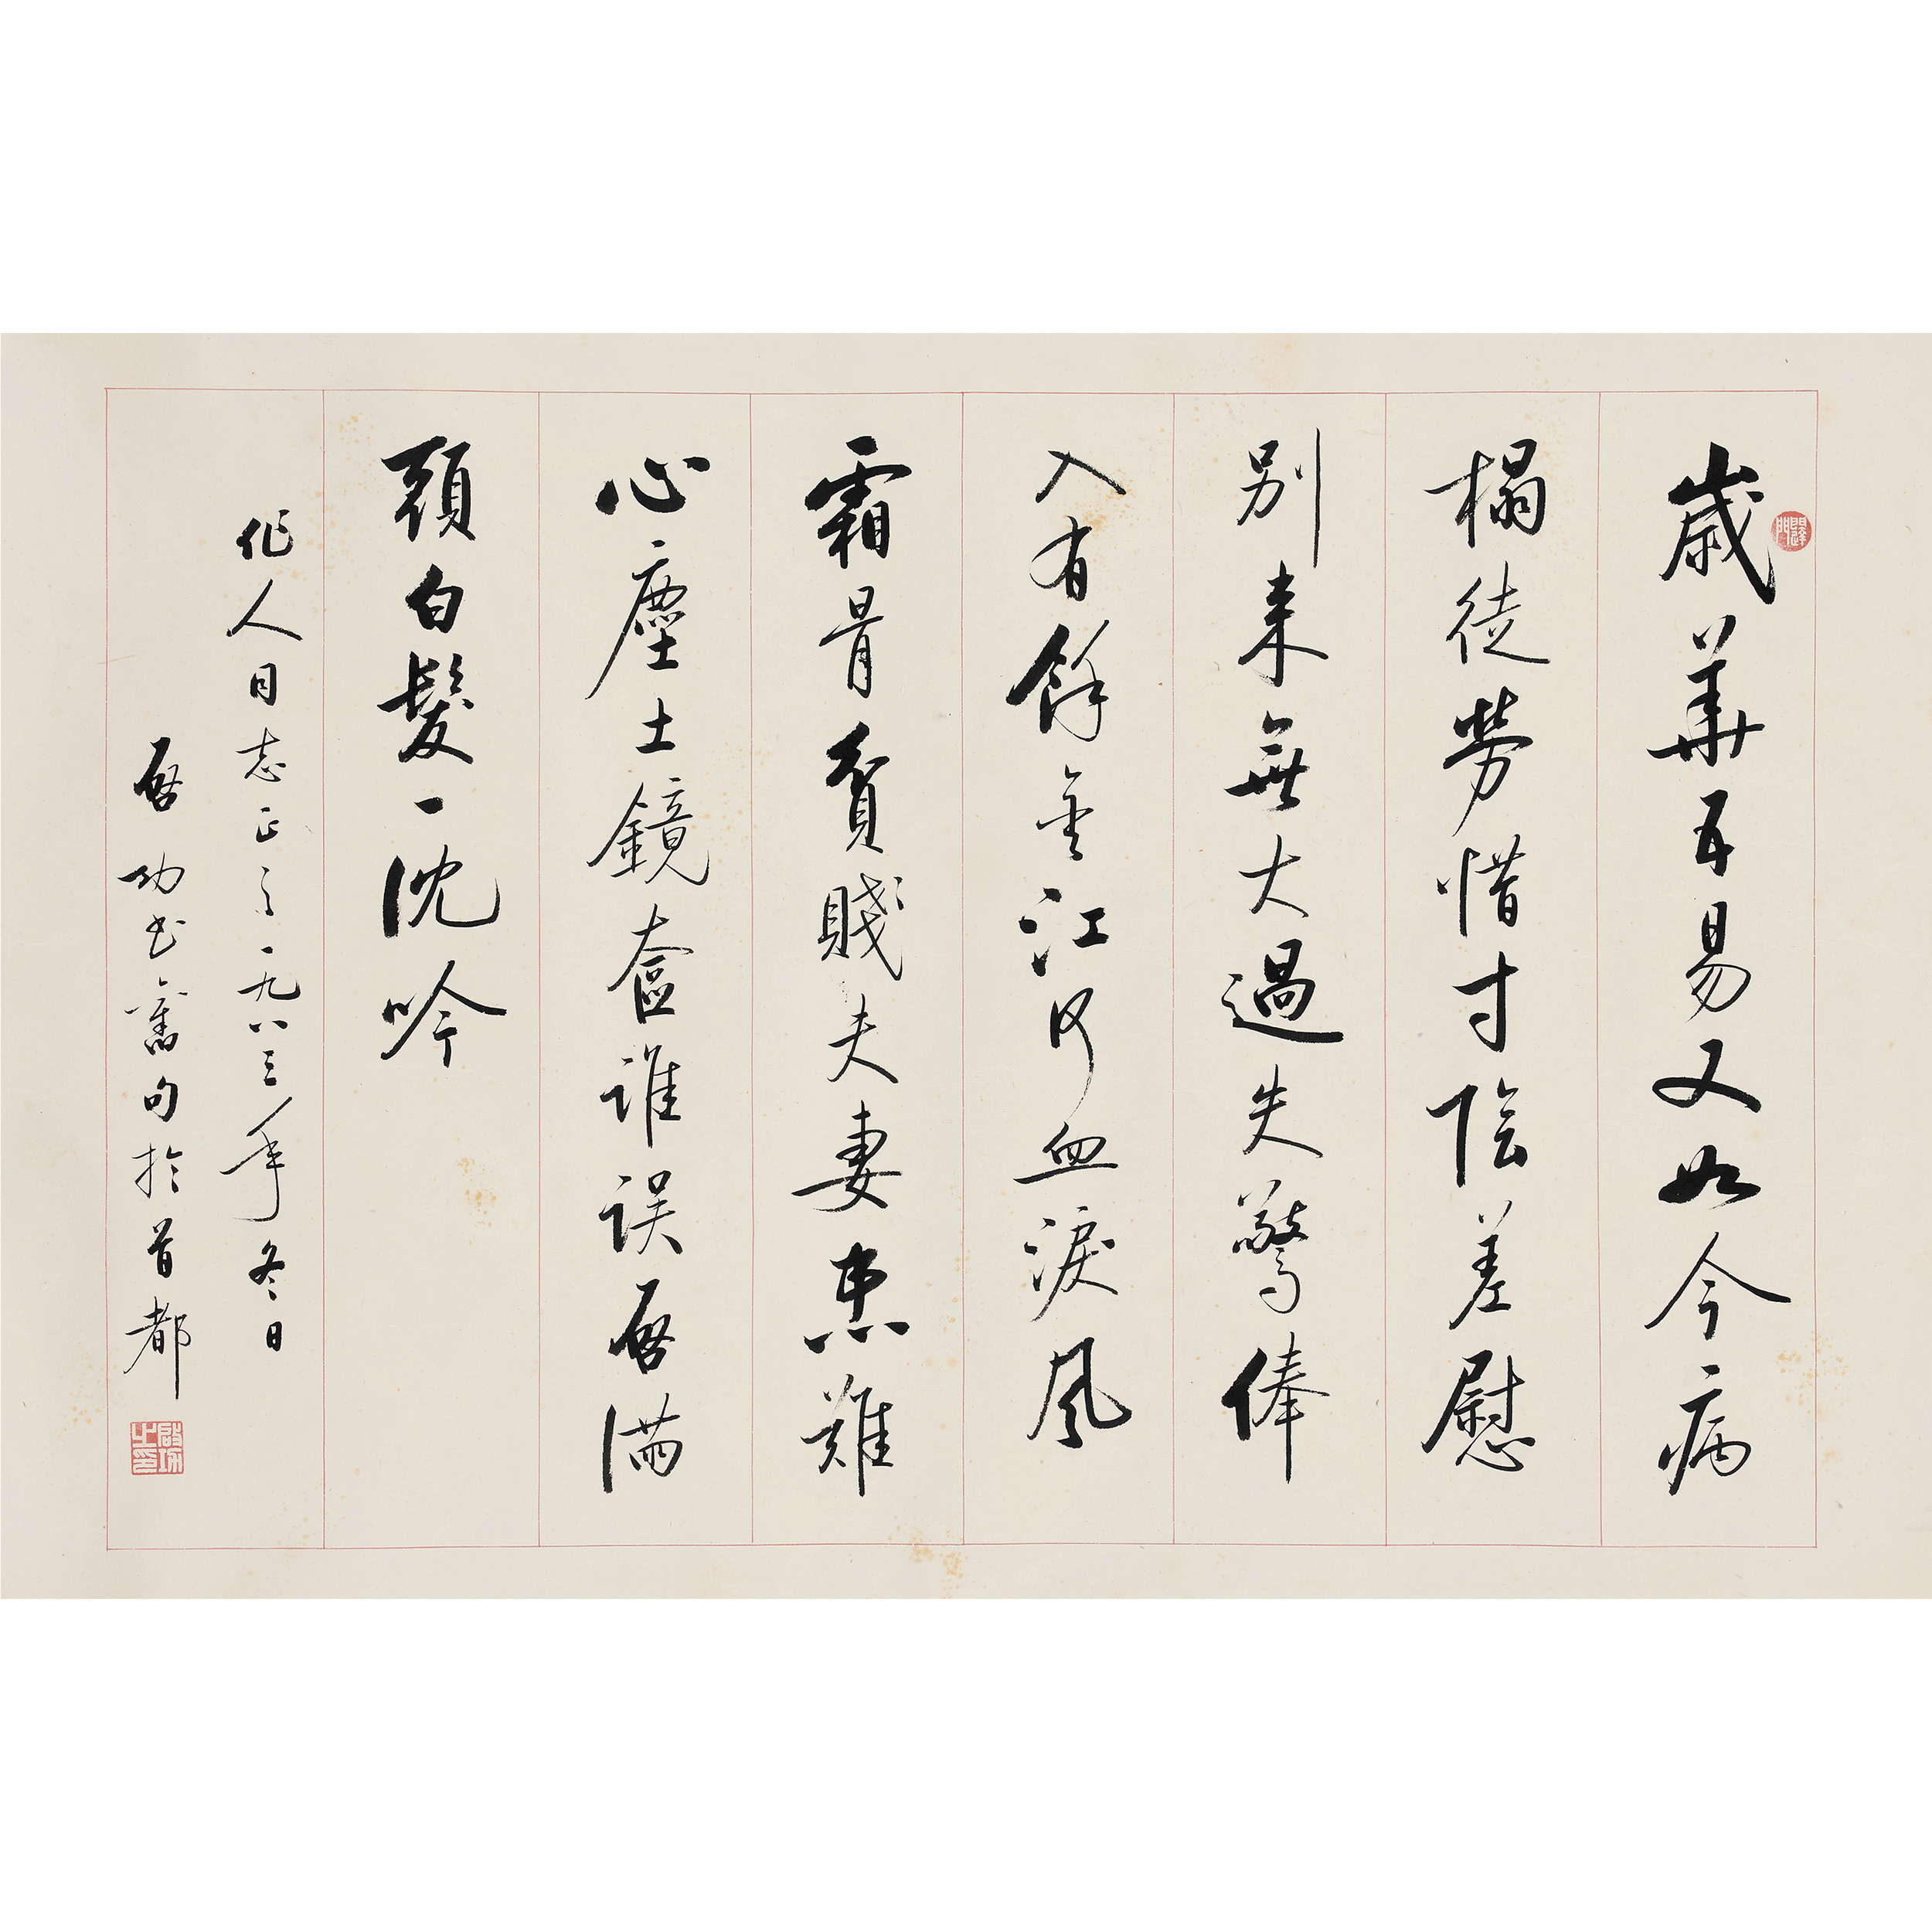 歲華五易又如今病
榻徒勞惜寸陰差慰
別來無大過失驚俸
入有餘金江河血淚風
霜骨貧賤夫妻患難
心塵土鏡奩誰誤启滿
頭白髮一沈吟
作人同志正之一九八三年冬日
启功書舊句於首都
啟功之印